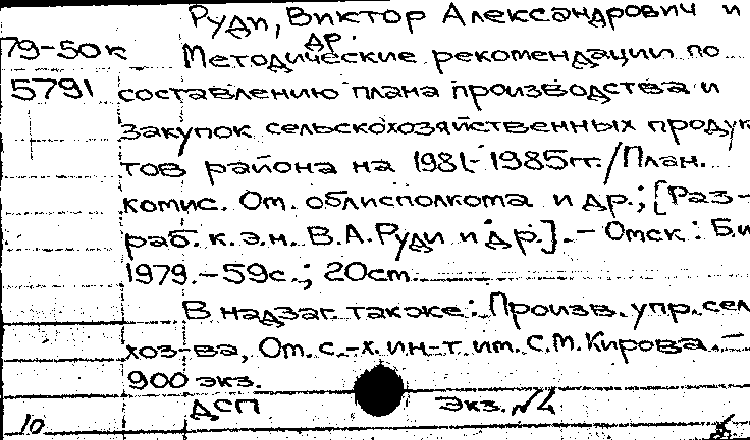 Руди, Виктор Александрович и
др.
79-50к Методические рекомендации по
5791 составлению плана производства и
закупок сельскохозяйственных продук
тов района на 1981-1985гг./План.
комис. Ом. облисполкома и др.; [Раз-
раб. к.э.н. В.А.Руди и др.]. - Омск : Б.и
1979.-59с.; 20см.
В надзаг. также: Произв. упр. сел
хоз-ва, Ом. с.-х. ин-т им. С.М.Кирова. -
900 экз.
ДСП Экз. №
10